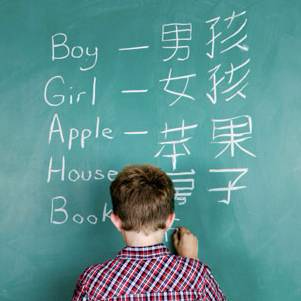 Boy – 男孩
Girl – 女孩
Apple – 苹果
House 房子
Book